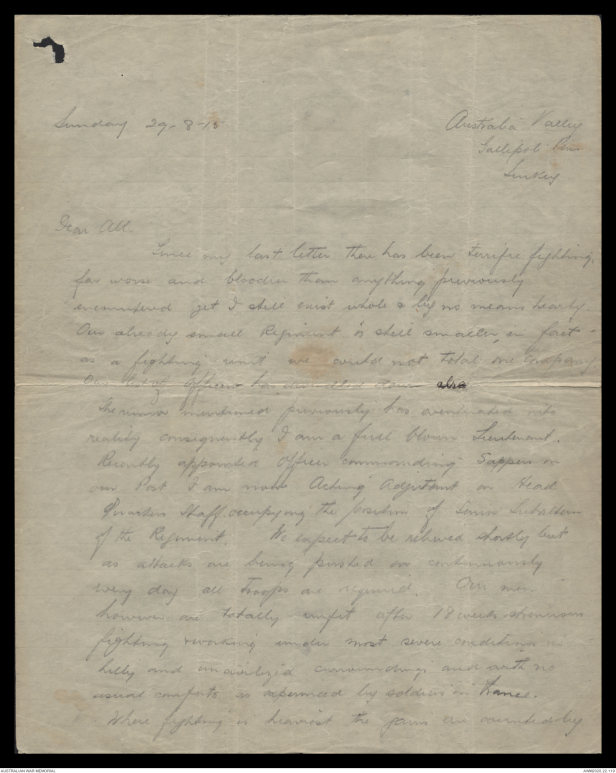 Sunday 29-8-15
Australia Valley
Gallipoli
Turkey
Dear All.
Since my last letter there has been terrific fighting,
far worse and bloodier than anything previously
encountered yet I still exist whole & by no means hearty
Our already small Regiment is still smaller, in fact
as a fighting unit we could not total one Company
Our Officers has down also
The mentioned previously has eventuated into
reality consequently I am a full blown Lieutenant.
Recently appointed Officer commanding Sappers on
our Post I am now Acting Adjutant on Head
Quarters Staff occupying the position of Senior Subaltern
of the Regiment. We expect to be relieved shortly but
as attacks are being pushed on continuously
every day all troops are required. Our men
however are totally unfit after 18 weeks strenuous
fighting & working under most severe conditions in
hilly and uncivilized surroundings and with no
usual comforts as experienced by soldiers in France.
Where fighting is heaviest the are by
AUSTRALIAN WAR MEMORIAL